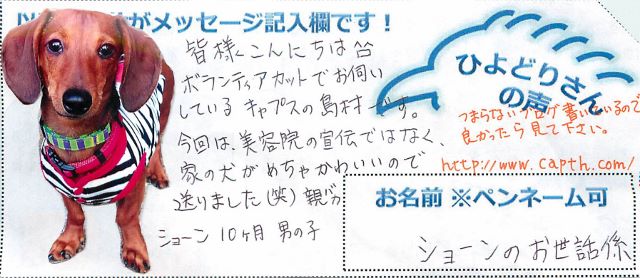 以がメッセージ記入欄です！
皆様、こんにちは
ボランティアカットでお伺い
している キャプスの島村です。
今回は、美容院の宣伝ではなく、
家の犬がめちゃかわいいので
送りました(笑) 親バカ
ショーン 10ヶ月 男の子
ひよどりさん
の声
つまらないブログ書いているので
良かったら見て下さい。
http://www.capth.com/
お名前 ※ペンネーム可
ショーンのお世話係